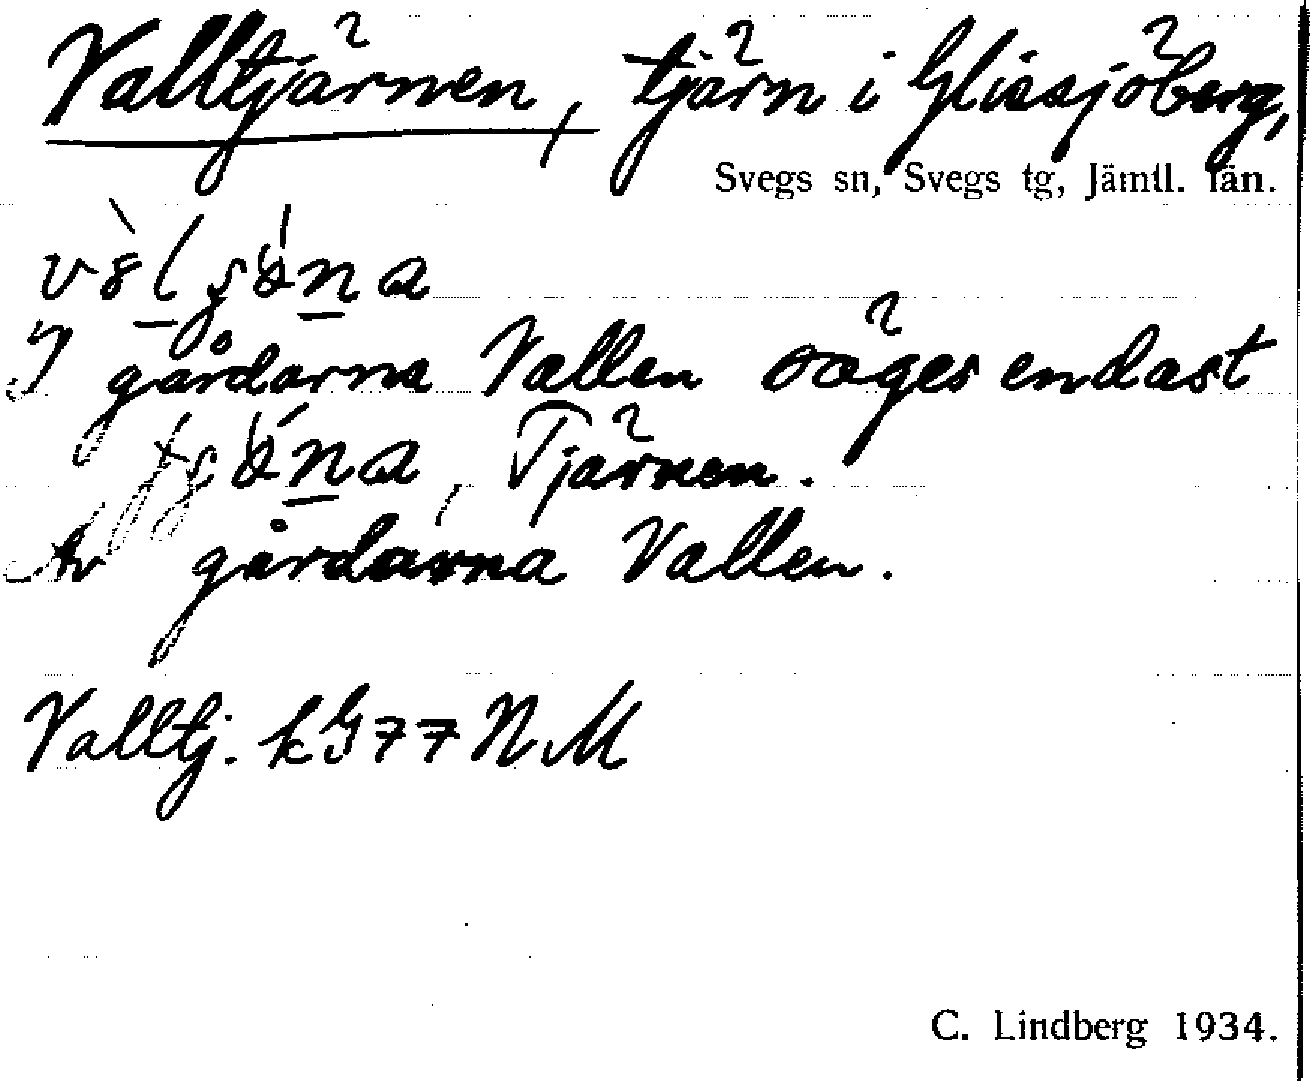 Valltjärnen, tjärn i Glissjöberg,
Svegs sn, Svegs tg, Jämtl. län.
I gårdarna Vallen säges endast
Tjärnen.
Av gårdarna Vallen.
Valltj. kG77 NM
C. Lindberg 1934.